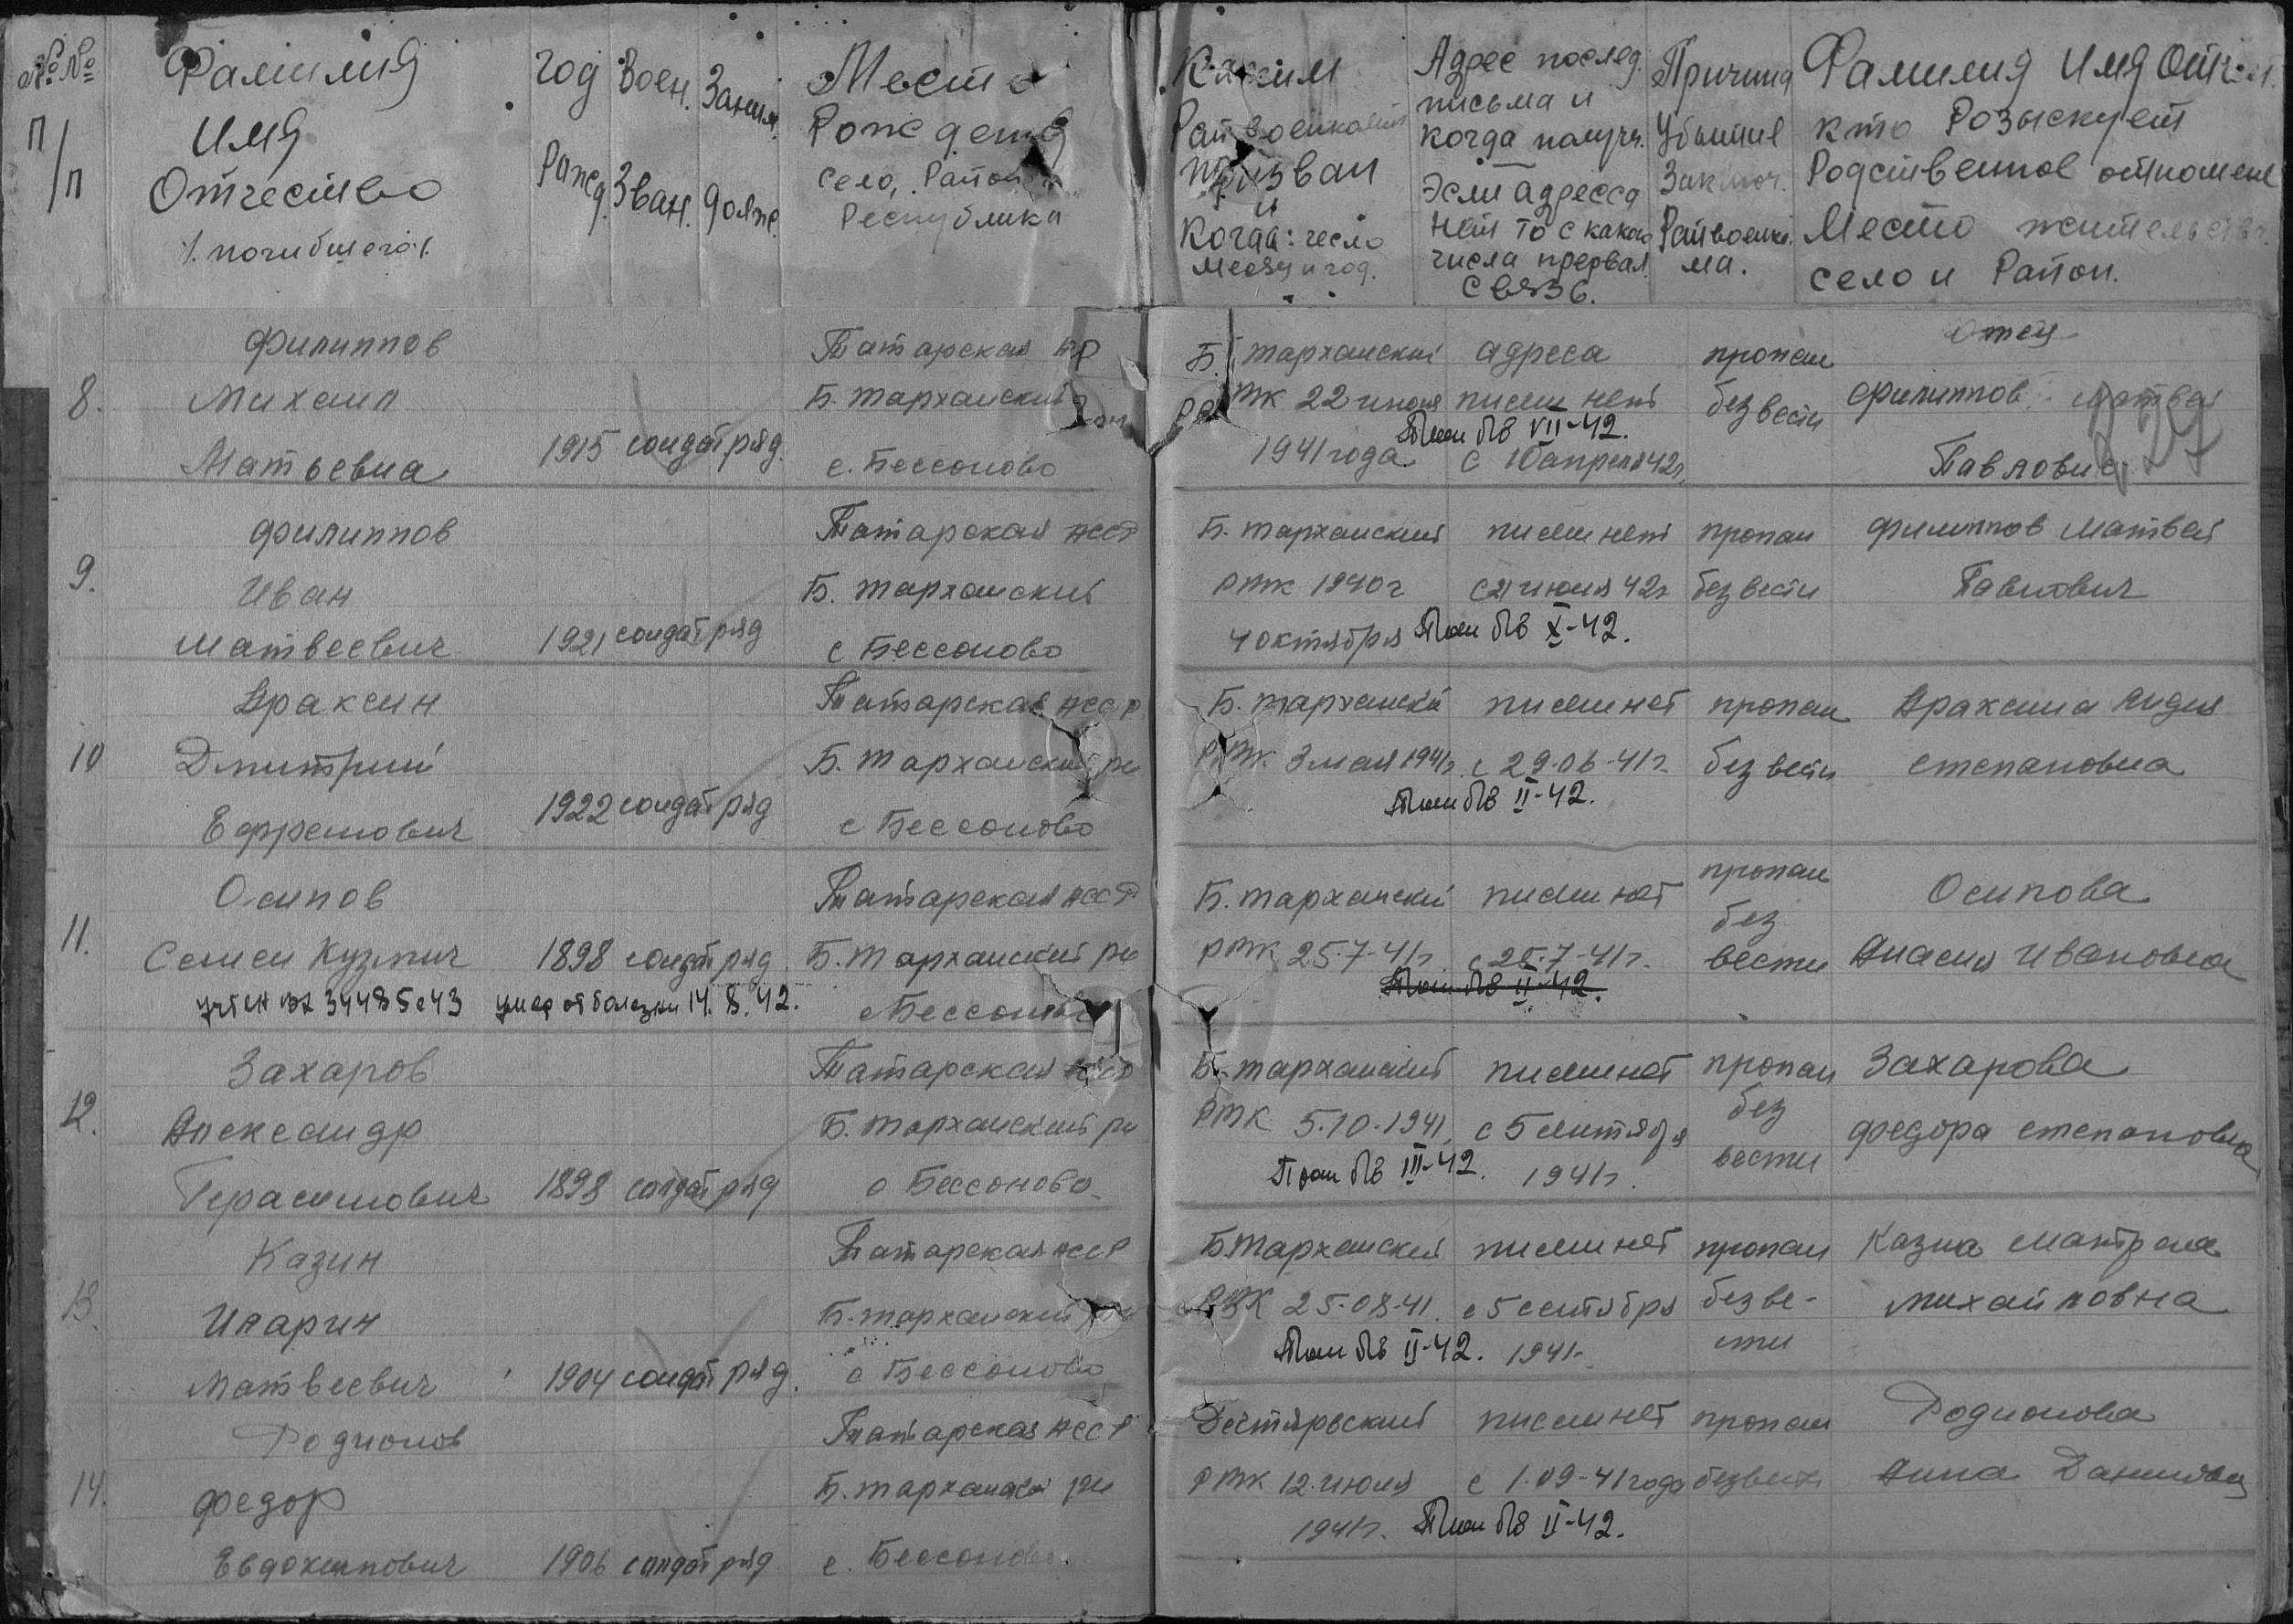 №№ п/п
Фамилия
Имя
Отчество
/. погибшего /.
год
Рожд.
Воен.
Зван.
Заним.
Долж.
Место
Рождения
село, Район
Республика
Каким
Райвоенкомат
призван
и
Когда: число
месяц и год.
Адрес послед.
письма и
когда получ.
Эсли адресса
нет то с какого
числа прервал.
связь.
Причина
Убытия
Заключ.
Райвоенко
ма.
Фамилия Имя Отч.
кто Розыскует
Родственное отношение
Место жительства
село и Район.
8.
Филиппов
Михаил
Матьевна
1915 солдат ряд.
Татарская
Б. Тарханский
с. Бессоново
Б. Тарханский
РВК 22 июня
1941 года
адреса
писем нет
с 10 апреля 42г.
Проп б/в VII-42.
пропал
без вести
Отец
Филиппов Матвей
Павлович
9.
Филиппов
Иван
Матвеевич
1921 солдат ряд
Татарская АССР
Б. Тарханский
с Бессоново
Б. Тарханский
РВК 1940г
4 октября
писем нет
с 21 июня 42г
Проп б/в X-42.
пропал
без вести
Филиппов Матвей
Павлович
10
Араксин
Дмитрий
Ефремович
1922 солдат ряд
Татарская АССР
Б. Тарханский рн
с Бессоново
Б. Тарханский
РВК 3 мая 1941г.
писем нет
с 29.06-41г.
Проп б/в II-42.
пропал
без вести
Араксина Лидия
Степановна
11.
Осипов
Семен Кузмич
1898 солдат ряд
учтен вх 34485с43 умер от болезни 14.8.42.
Татарская АССР
Б. Тарханский рн
с Бессоново
Б. Тарханский
РВК 25-7-41г
писем нет
с 25.7-41г.
Проп б/в II-42.
пропал
без
вести
Осипова
Анасия Ивановна
12.
Захаров
Александр
Герасимович
1898 солдат ряд
Татарская АССР
Б. Тарханский рн
с Бессоново
Б. Тарханский
РВК 5.10.1941
писем нет
с 5 сентября
1941г.
Проп б/в III-42.
пропал
без
вести
Захарова
Федора Степановна
13.
Казин
Иларин
Матвеевич
1904 солдат ряд.
Татарская АССР
Б. Тарханский рн
с Бессоново
Б. Тарханский
РВК 25-08-41.
писем нет
с 5 сентября
1941г.
Проп б/в II-42.
пропал
без ве-
сти
Казина Матрена
Михайловна
14.
Родионов
Федор
Евдокимович
1906 солдат ряд
Татарская АССР
Б. Тарханский рн
с. Бессоново
РВК 12 июля
1941г.
писем нет
с 1.09-41 года
Проп б/в II-42.
пропал
без вести
Родионова
Анна Даниловна